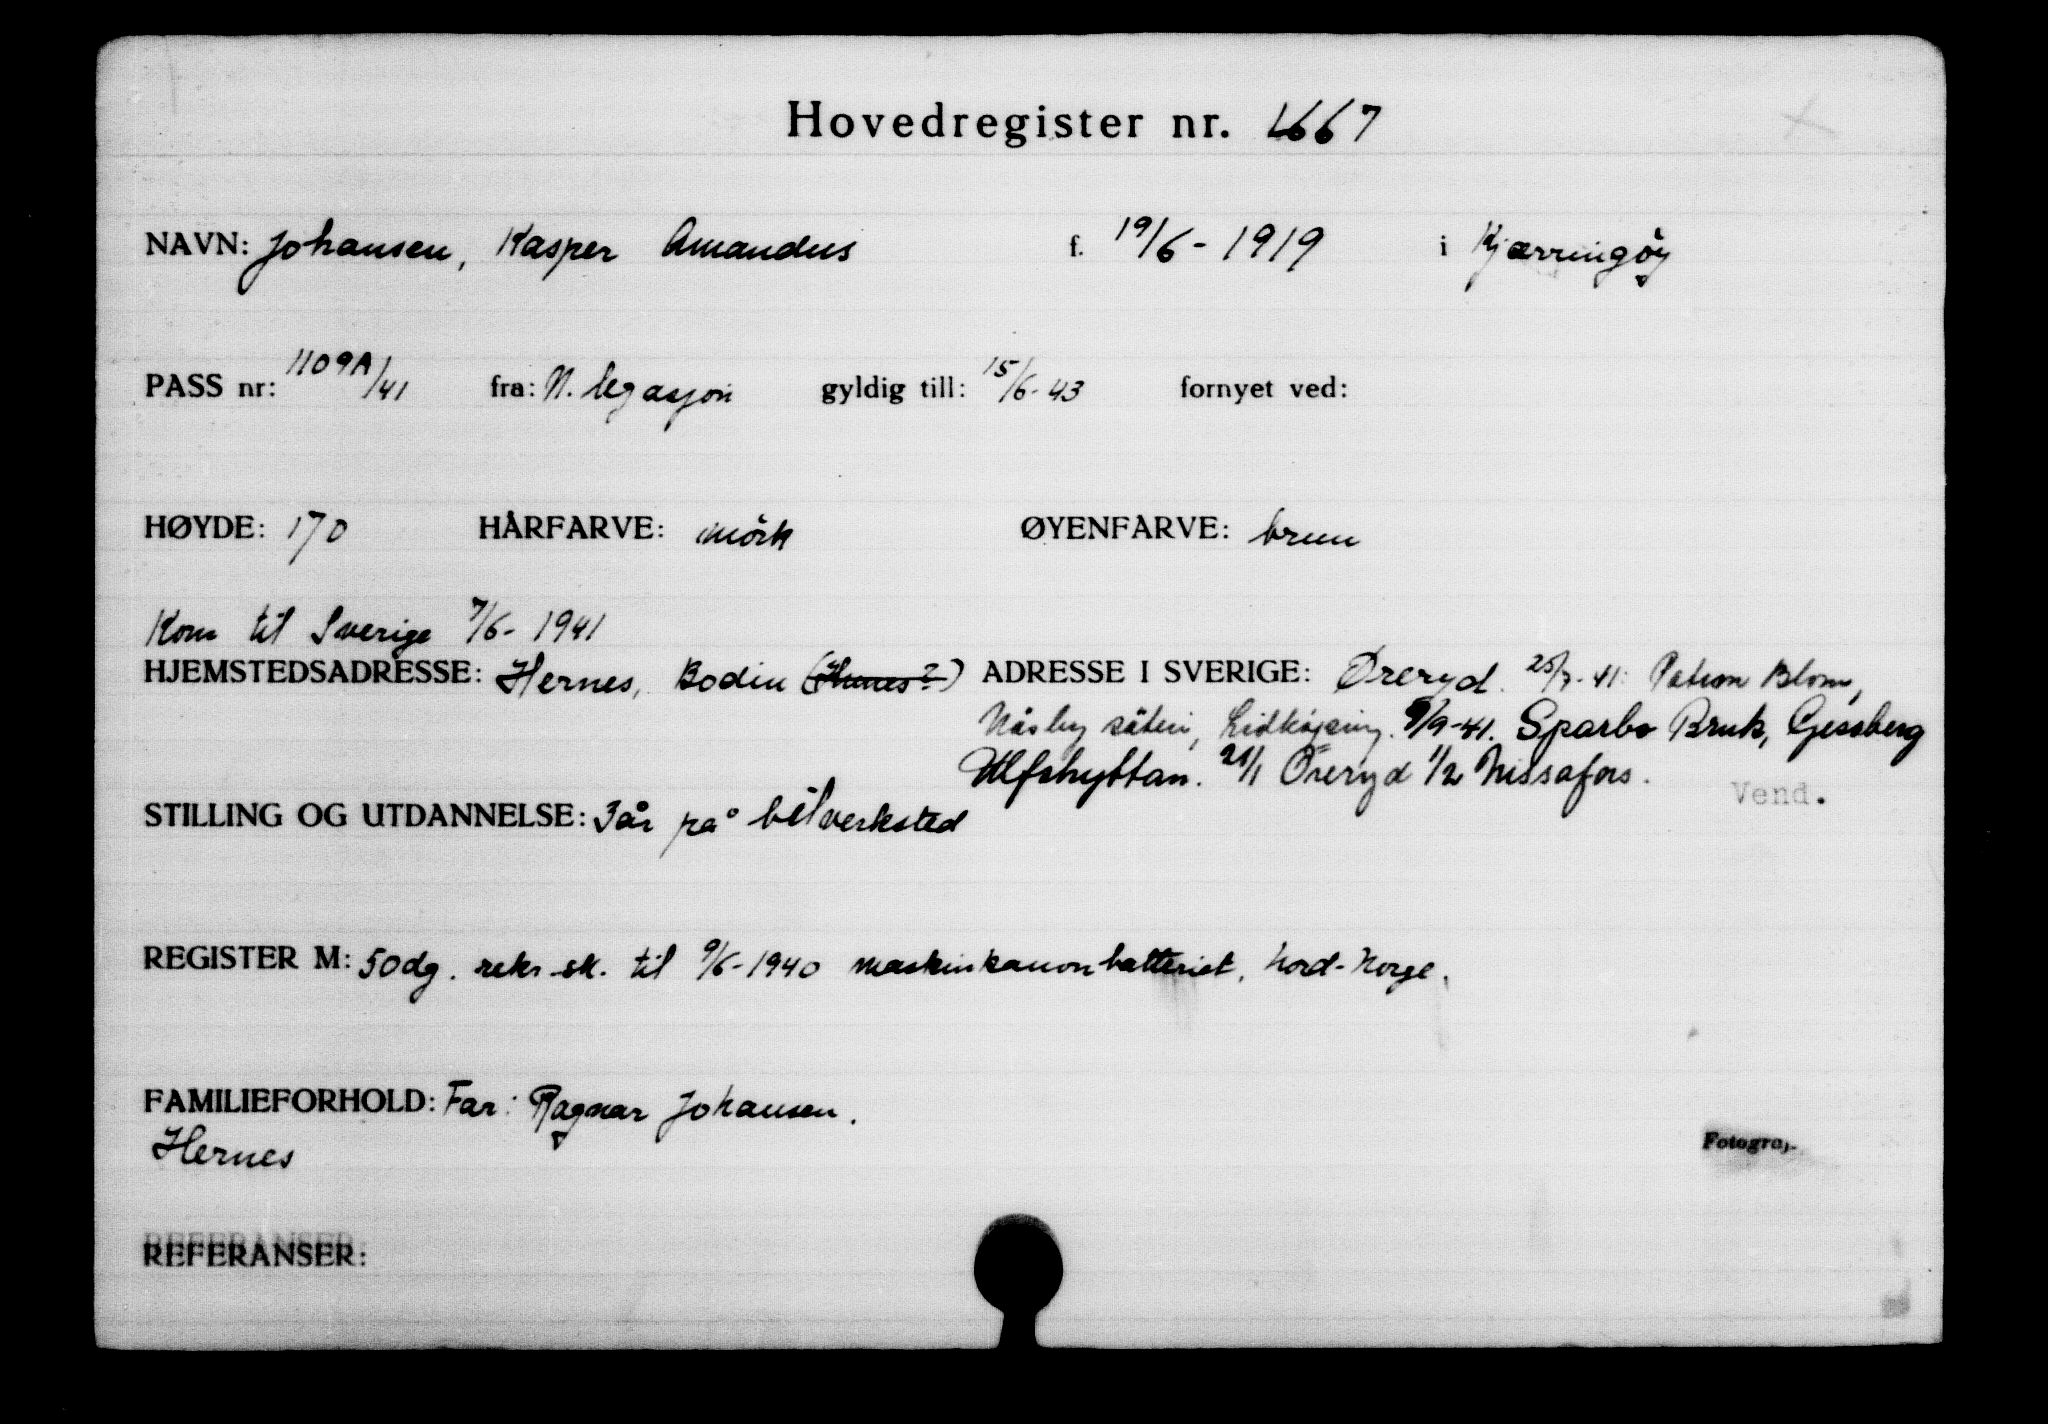 Hovedregister nr. 1667
NAVN: Johansen, Kasper Amandus f. 19/6-1919 i Kjærringöy
PASS nr: 1109A/41 fra: N. legasjon gyldig till: 15/6-43 fornyet ved:
HØYDE: 170 HÅRFARVE: mörk ØYENFARVE: brun
Kom til Sverige 7/6-1941
HJEMSTEDSADRESSE: Hernes, Bodin (Hunes?) ADRESSE I SVERIGE: Øreryd. 25/7-41: Patron Blom,
Näsby säteri, Lidköping. 9/9-41. Sparbo Bruk, Gessberg
Ulfshyttan. 21/1 Öreryd 1/2 Nissafors.
Vend.
STILLING OG UTDANNELSE: 3 år på bilverksted
REGISTER M: 50 dg. rekr-sk. til 9/6-1940 maskinkanonbatteriet, Nord-Norge.
FAMILIEFORHOLD: Far: Ragnar Johansen.
Hernes
Fotogra
REFERANSER: